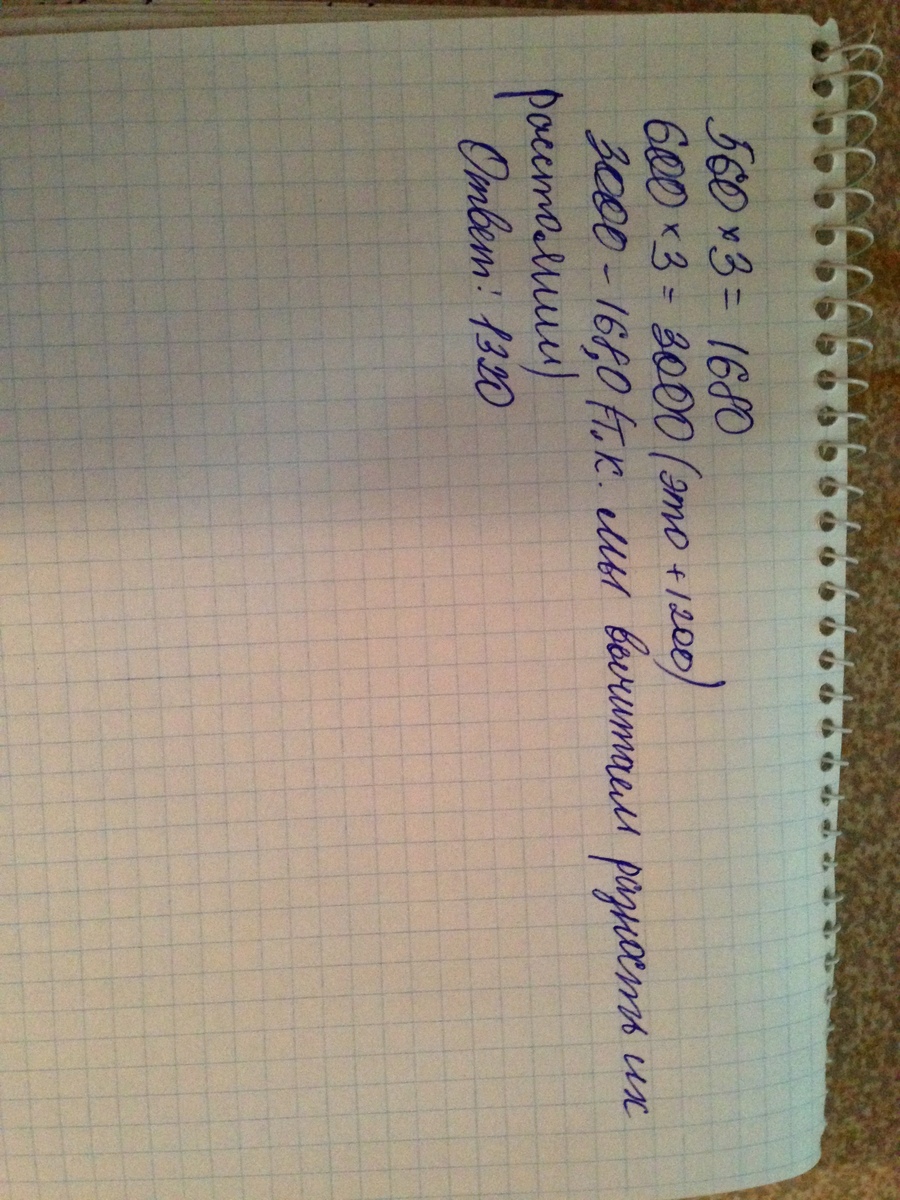 560 × 3 = 1680
600 × 3 = 3000 (это +1200)
3000 - 1680 (т.к. мы вычитаем разность их
расстоянии)
Ответ: 1320